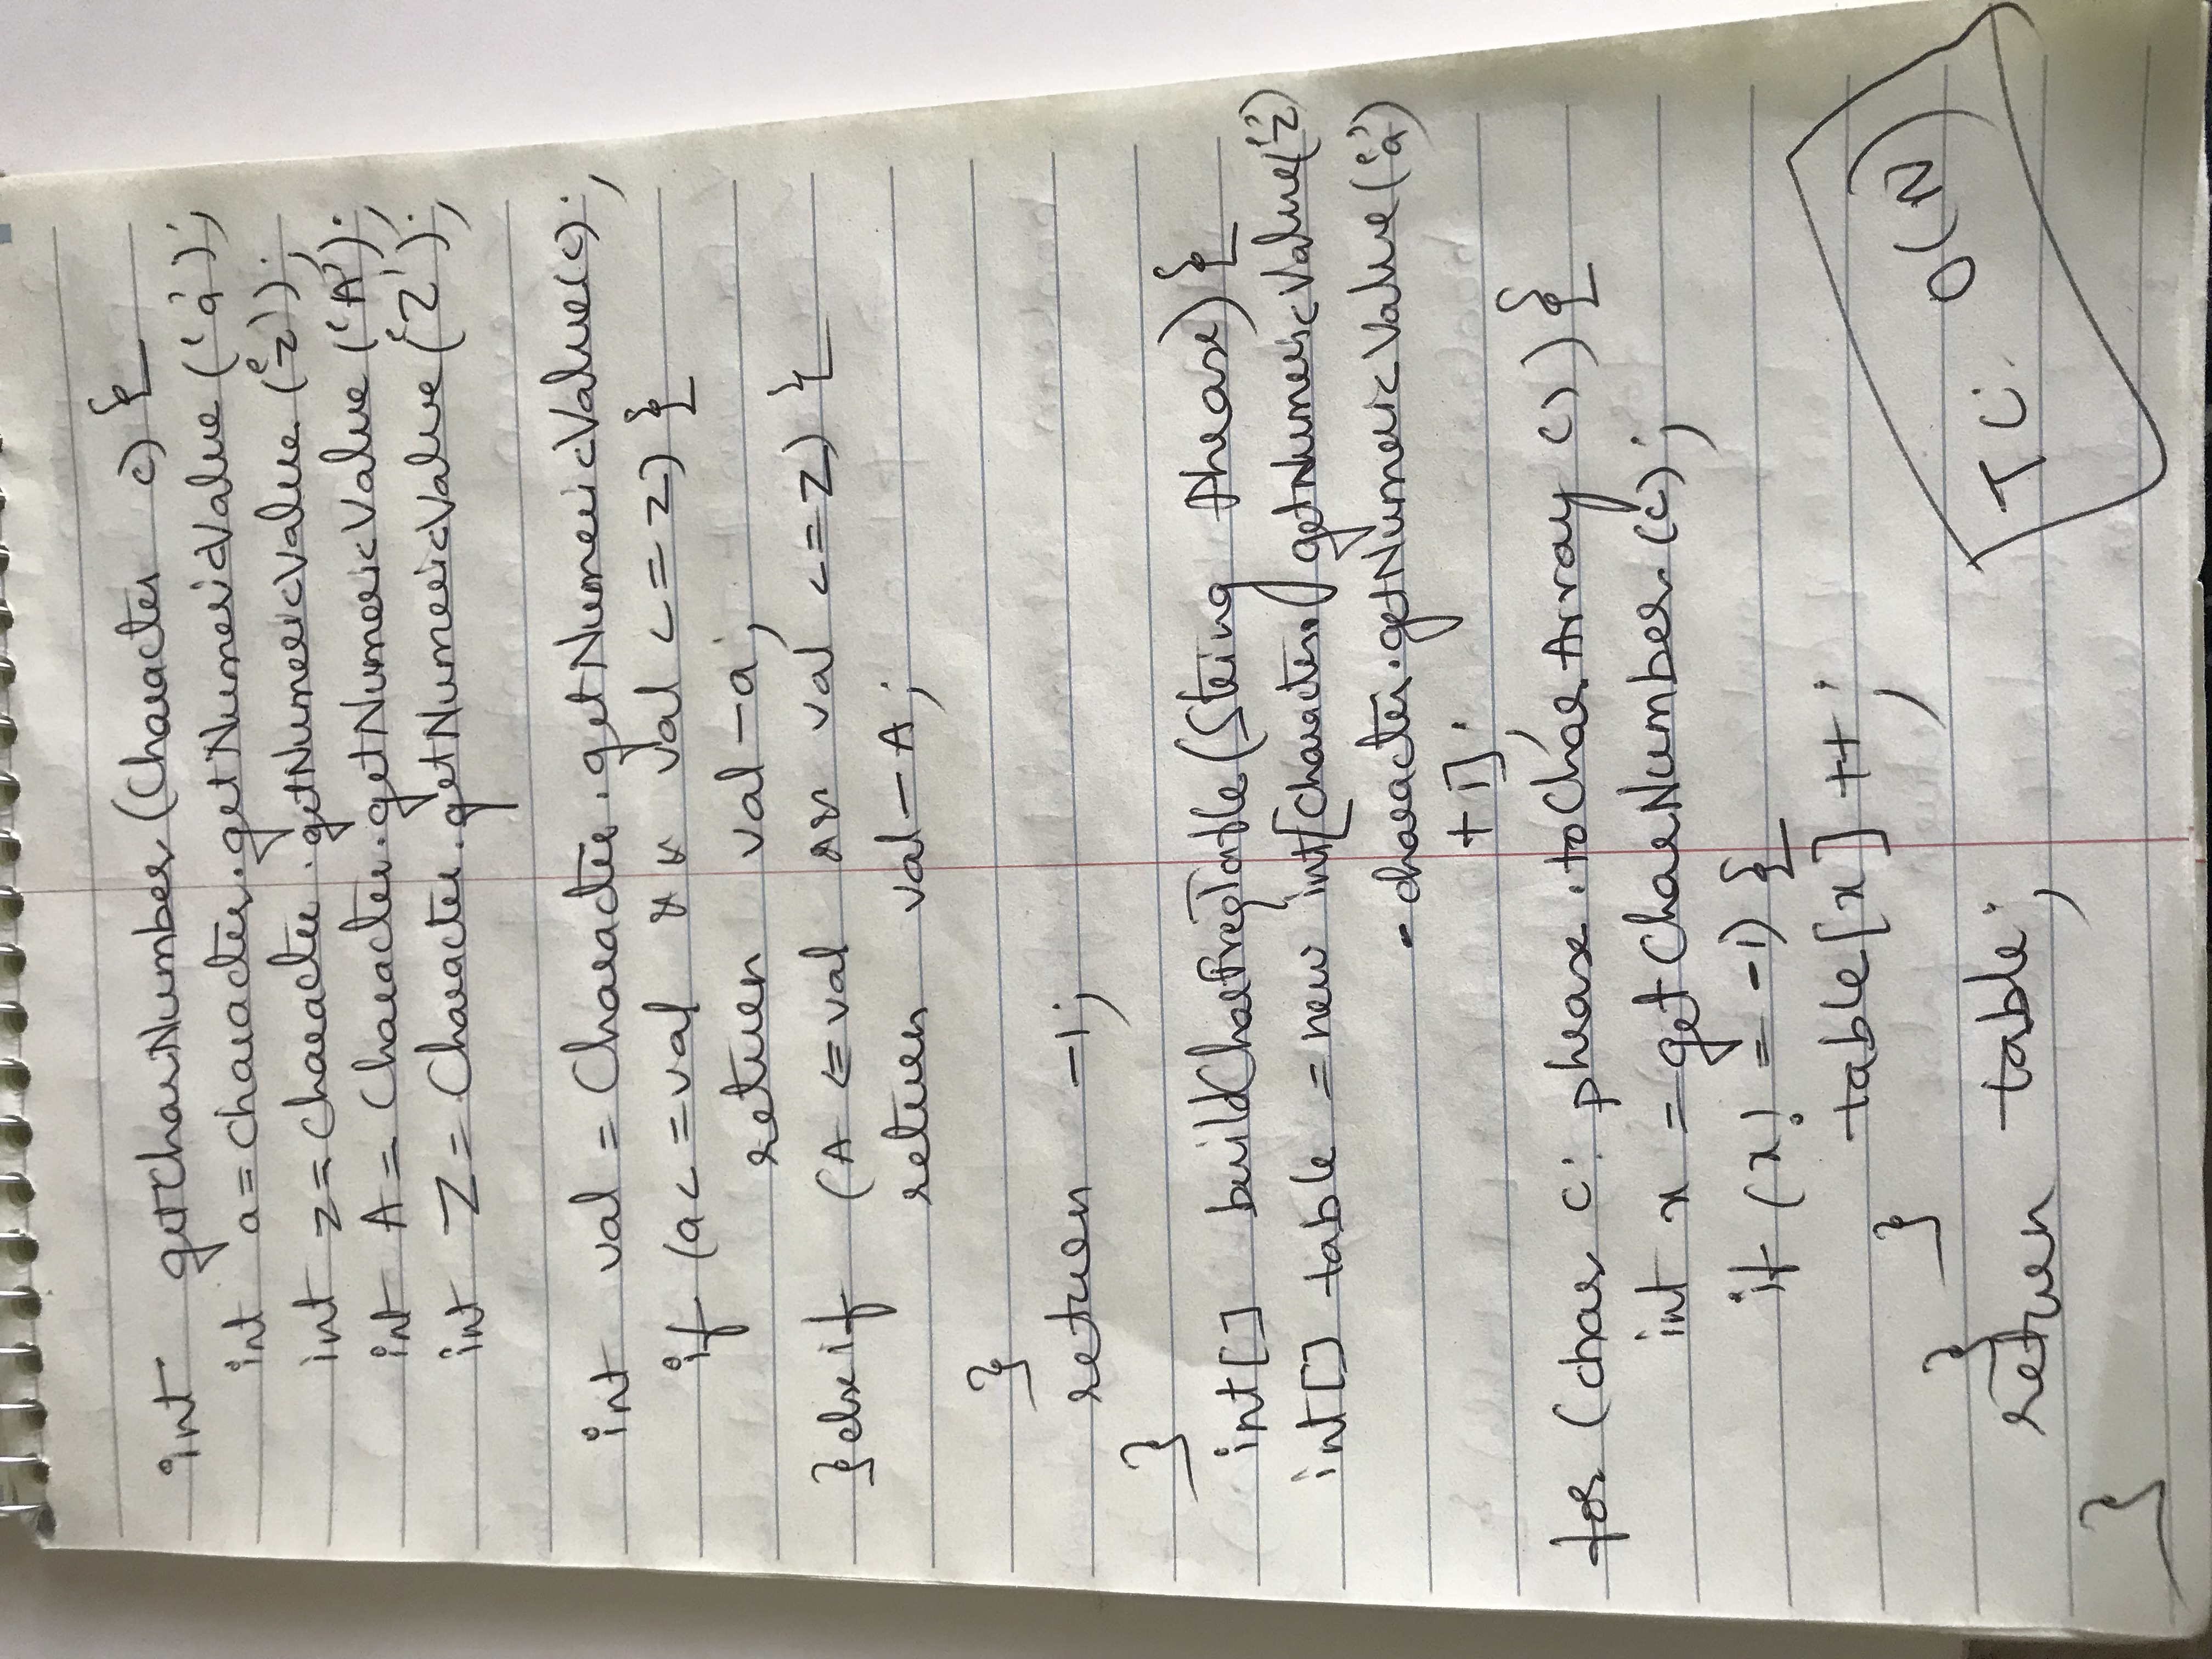 int getCharNumber (Character c) {
int a = Character.getNumericValue ('a');
int z = Character.getNumericValue ('z');
int A = Character.getNumericValue ('A');
int Z = Character.getNumericValue ('Z');
int val = Character.getNumericValue(c);
if (a <= val && val <= z) {
return val - a;
} else if (A <= val && val <= Z) {
return val - A;
}
return -1;
}
int[] buildCharFreqTable (String Phrase) {
int[] table = new int[Character.getNumericValue('z')
- character.getNumericValue('a')
+ 1];
for (char c : phrase.toCharArray ()) {
int x = getCharNumber (c);
if (x != -1) {
table[x]++;
}
}
return table;
}
TC: O(N)